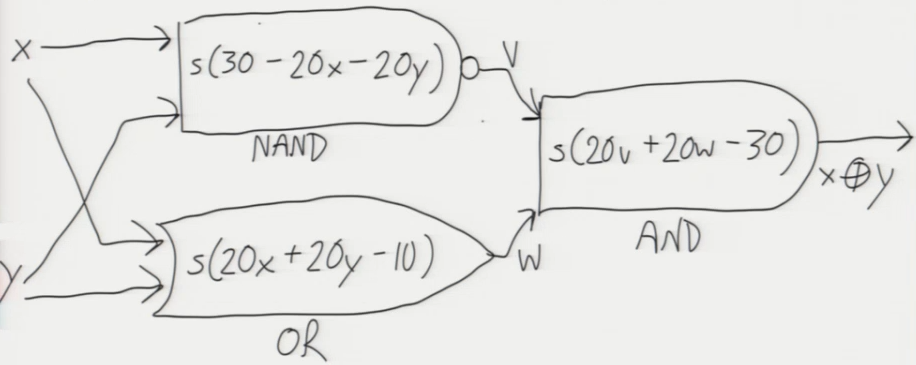 x
s(30 - 20x - 20y)
NAND
v
y
s(20x + 20y - 10)
OR
w
s(20v + 20w - 30)
AND
x⊕y